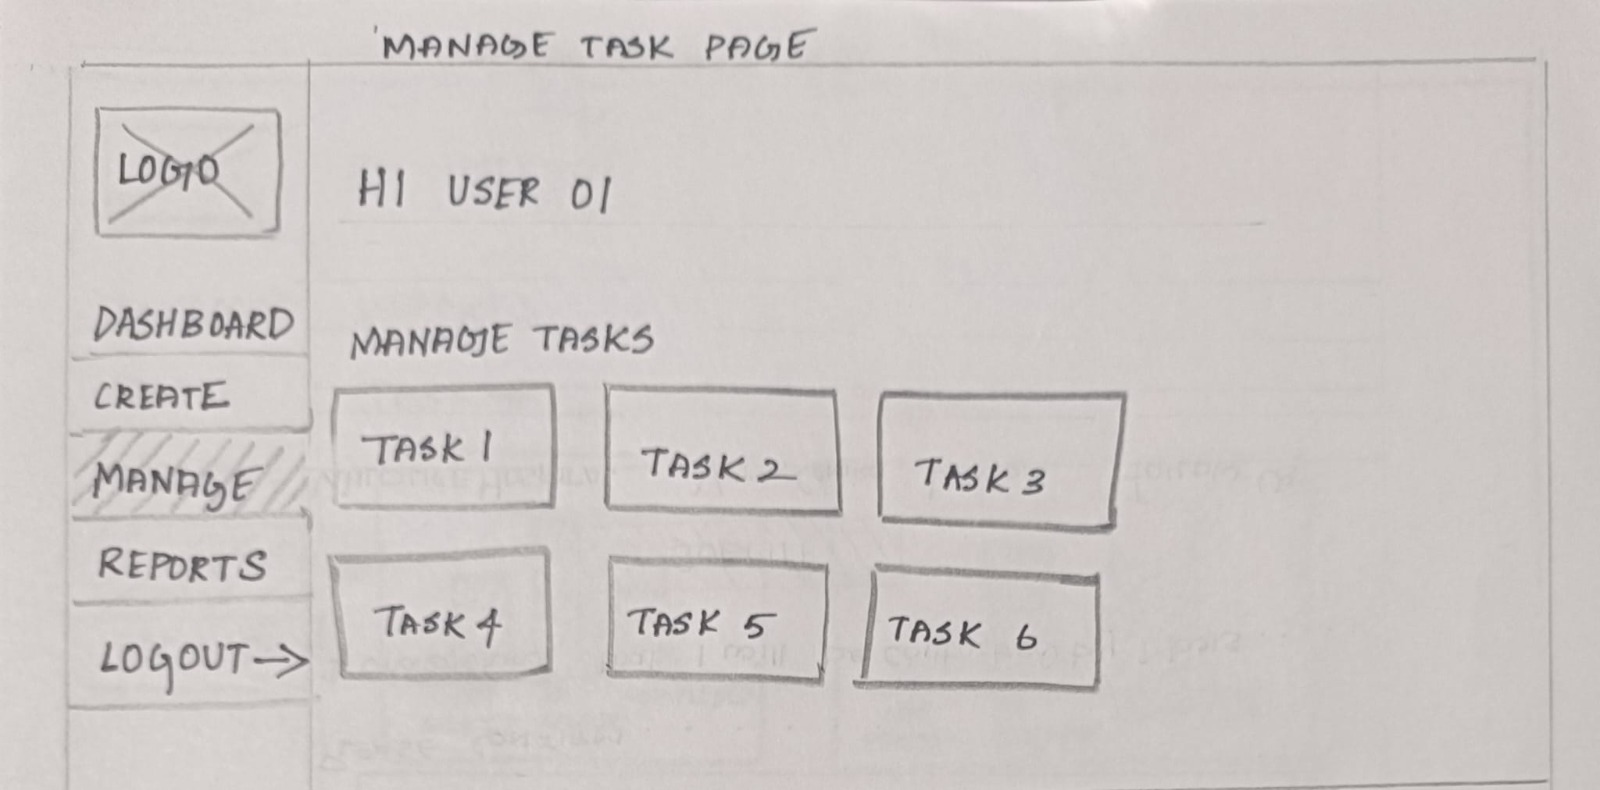 MANAGE TASK PAGE
LOGO
HI USER 01
DASHBOARD
CREATE
MANAGE
REPORTS
LOGOUT →
MANAGE TASKS
TASK 1
TASK 2
TASK 3
TASK 4
TASK 5
TASK 6